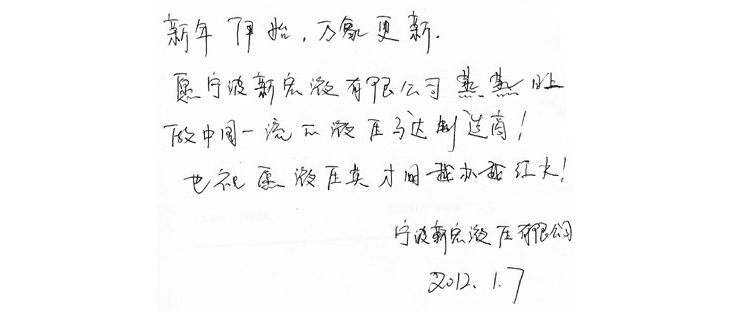 新年伊始，万象更新.
愿宁波新宏液有限公司蒸蒸日上
做中国一流的液压马达制造商！
也祝愿液压英才网越办越红火！
宁波新宏液压有限公司
2012.1.7